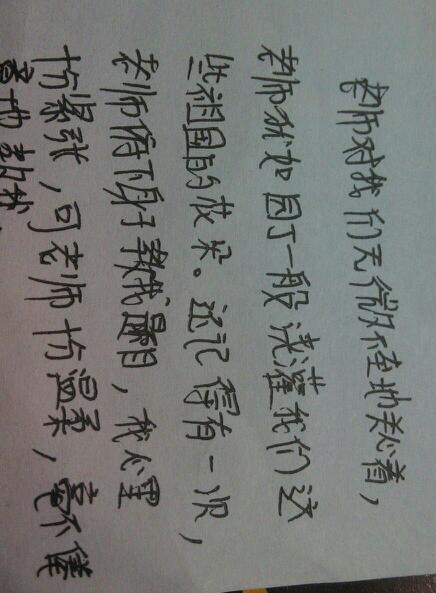 老师对我们无微不至地关心着，
老师犹如园丁一般浇灌我们这
些祖国的花朵。还记得有一次，
老师俯下身子教我题目，我心里
十分紧张，可老师十分温柔，毫不倦
意地教我